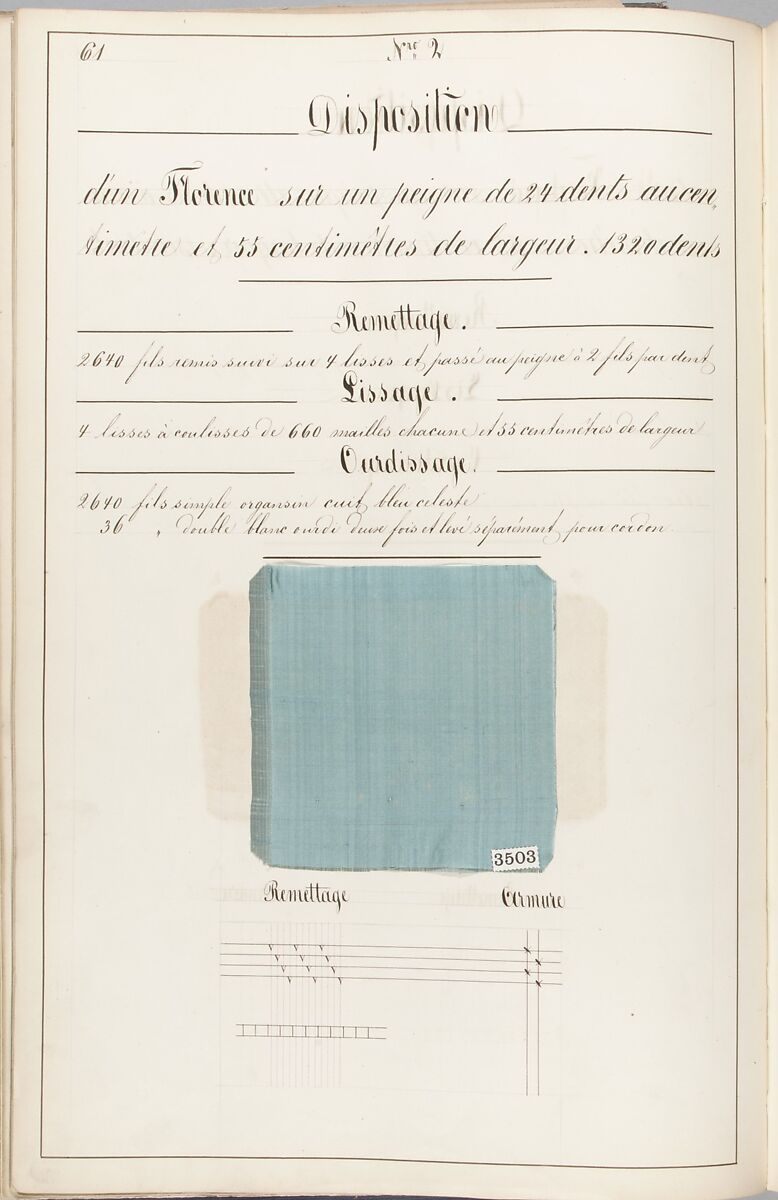 61
Nro 2
Disposition
d'un Florence sur un peigne de 24 dents au cen,
timètre et 55 centimètres de largeur. 1320 dents
Remettage.
2640 fils remis suivi sur 4 lisses et passé au peigne à 2 fils par dent
Lissage.
4 lisses à coulisses de 660 mailles chacune et 55 centimètres de largeur
Ourdissage.
2640 fils simple organsin cuit bleu celeste
36 " double blanc ourdi deux fois et levé séparément pour cordon.
3503
Remettage
Armure